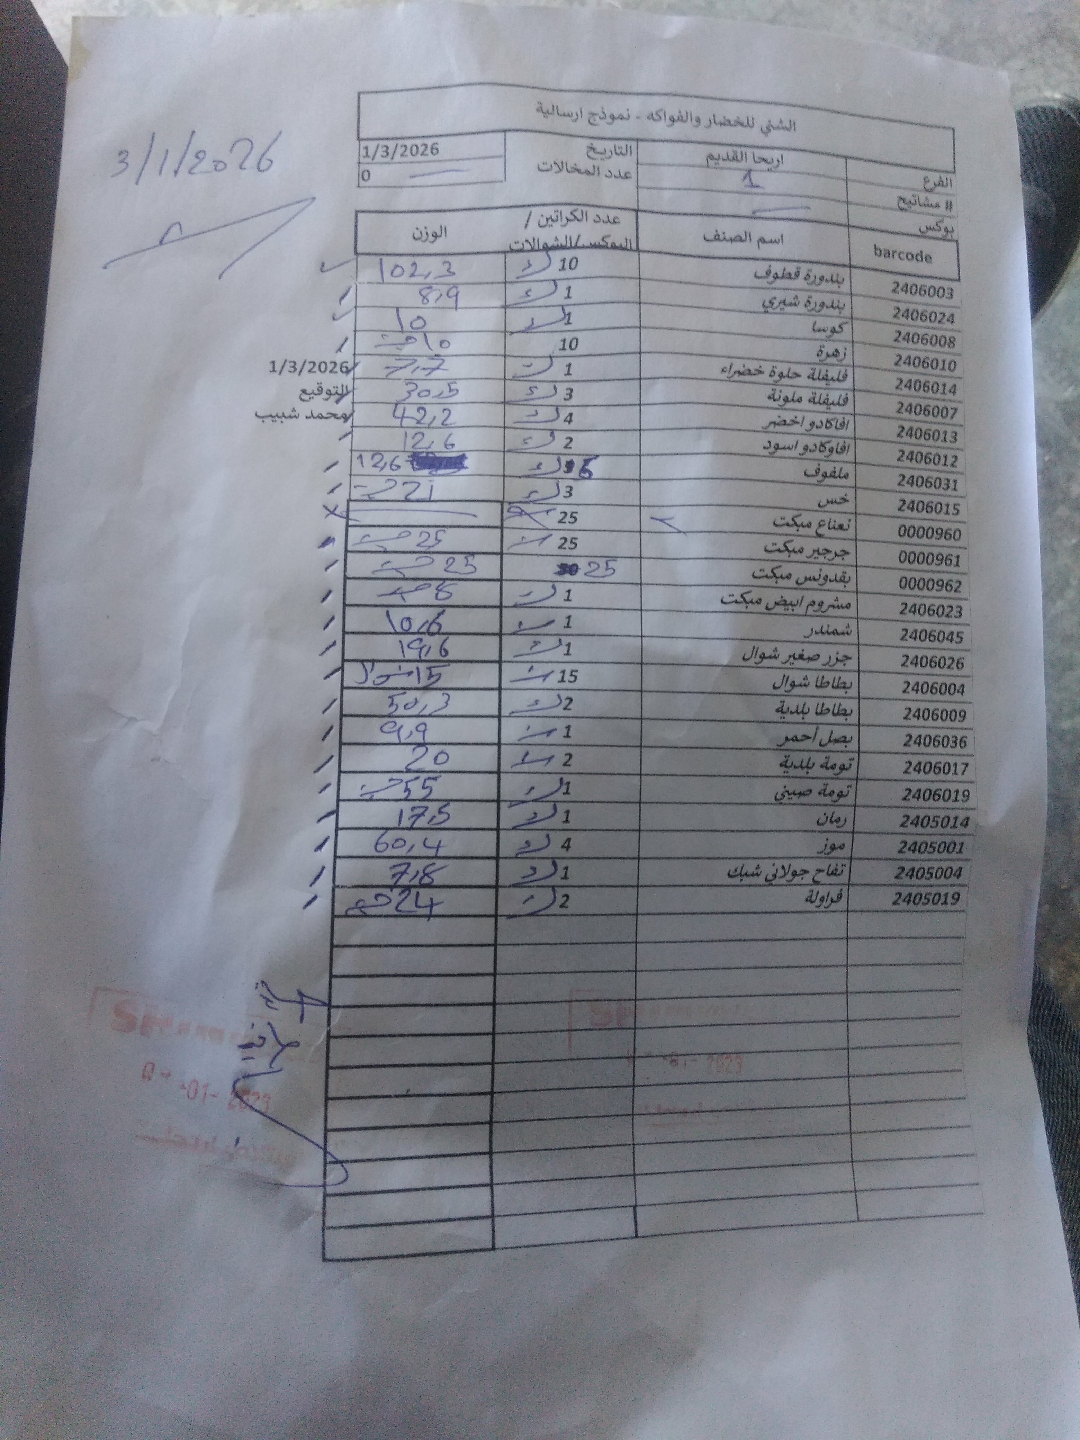 3/1/2026
الشني للخضار والفواكه - نموذج ارسالية
الفرع اريحا القديم التاريخ 1/3/2026
# مشاتيح 1 عدد المخالات 0
بوكس
barcode اسم الصنف عدد الكراتين / البوكس/الشوالات الوزن
2406003 بندورة قطوف 10 102,3
2406024 بندورة شيري 1 8,9
2406008 كوسا 1 10
2406010 زهرة 10 10
2406014 فليفلة حلوة خضراء 1 7,7 1/3/2026
2406007 فليفلة ملونة 3 30,5 التوقيع
2406013 افاكادو اخضر 4 42,2 محمد شبيب
2406012 افاوكادو اسود 2 12,6
2406031 ملفوف 12,6
2406015 خس 3 21
0000960 نعناع مبكت 25
0000961 جرجير مبكت 25 25
0000962 بقدونس مبكت 25 25
2406023 مشروم ابيض مبكت 1 8
2406045 شمندر 1 10,6
2406026 جزر صغير شوال 1 19,6
2406004 بطاطا شوال 15 15 شوال
2406009 بطاطا بلدية 2 50,3
2406036 بصل أحمر 1 9,9
2406017 تومة بلدية 2 20
2406019 تومة صيني 1 55
2405014 رمان 1 17,5
2405001 موز 4 60,4
2405004 تفاح جولاني شبك 1 7,8
2405019 فراولة 2 24